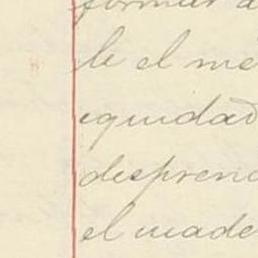 formar a
le el me
equidad
despren
el made